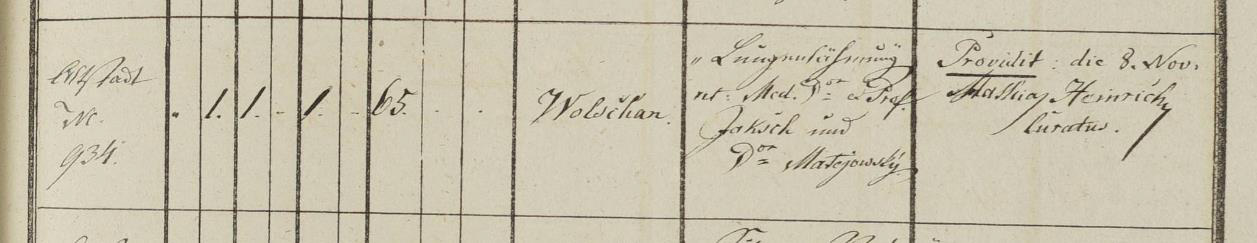 Altstadt
N.
934.
" 1. 1. - 1. - 65. . .
Wolschan.
„Lungenlähmung"
nt: Med. Dor & Prof.
Jaksch und
Dor Matejowský
Providit: die 8. Nov.
Mathias Heinrich,
Curatus.